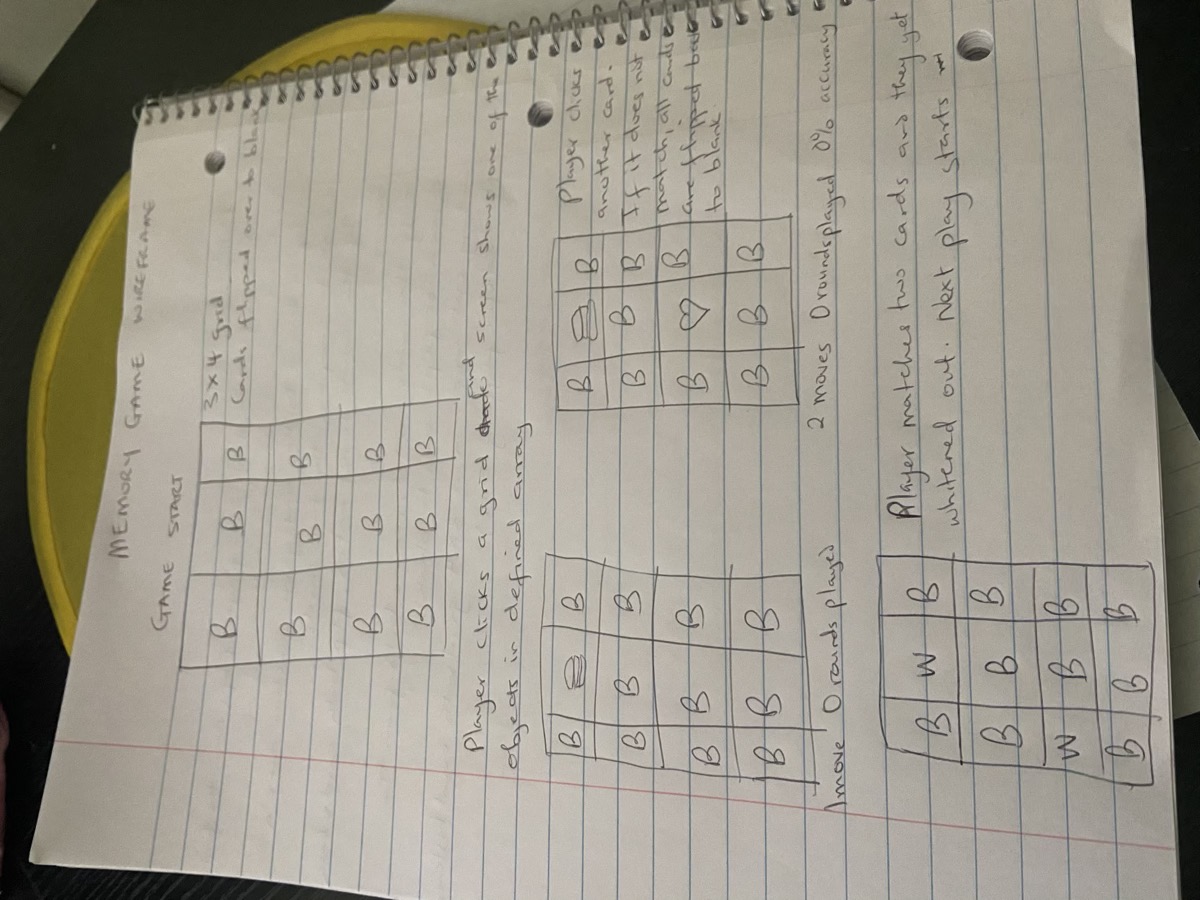 MEMORY GAME WIREFRAME
GAME START
3x4 grid
Cards flipped over to blank
B B B
B B B
B B B
B B B
Player clicks a grid and screen shows one of the
objects in defined array
B B
B B B
B B B
B B B
1 move 0 rounds played
B B
B B B
B B
B B B
Player clicks
another card.
If it does not
match, all cards
are flipped back
to blank
2 moves 0 rounds played 0% accuracy
B W B
B B B
W B B
B B B
Player matches two cards and they get
whitened out. Next play starts